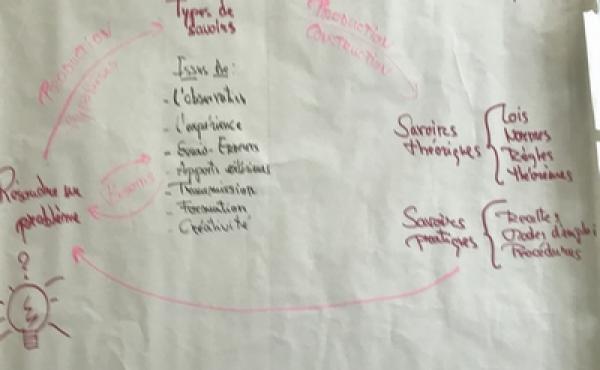 Types de
savoirs
Production
hypothèses
PRODUCTION
CONSTRUCTION
Issus de:
- L'observation
- L'expérience
- Essais-Erreurs
- Apports extérieurs
- Transmission
- Formation
- Créativité
Résoudre un
problème
?
Besoins
Savoirs
théoriques
Lois
Normes
Règles
théorèmes
Savoirs
pratiques
Recettes
Modes d'emploi
Procédures